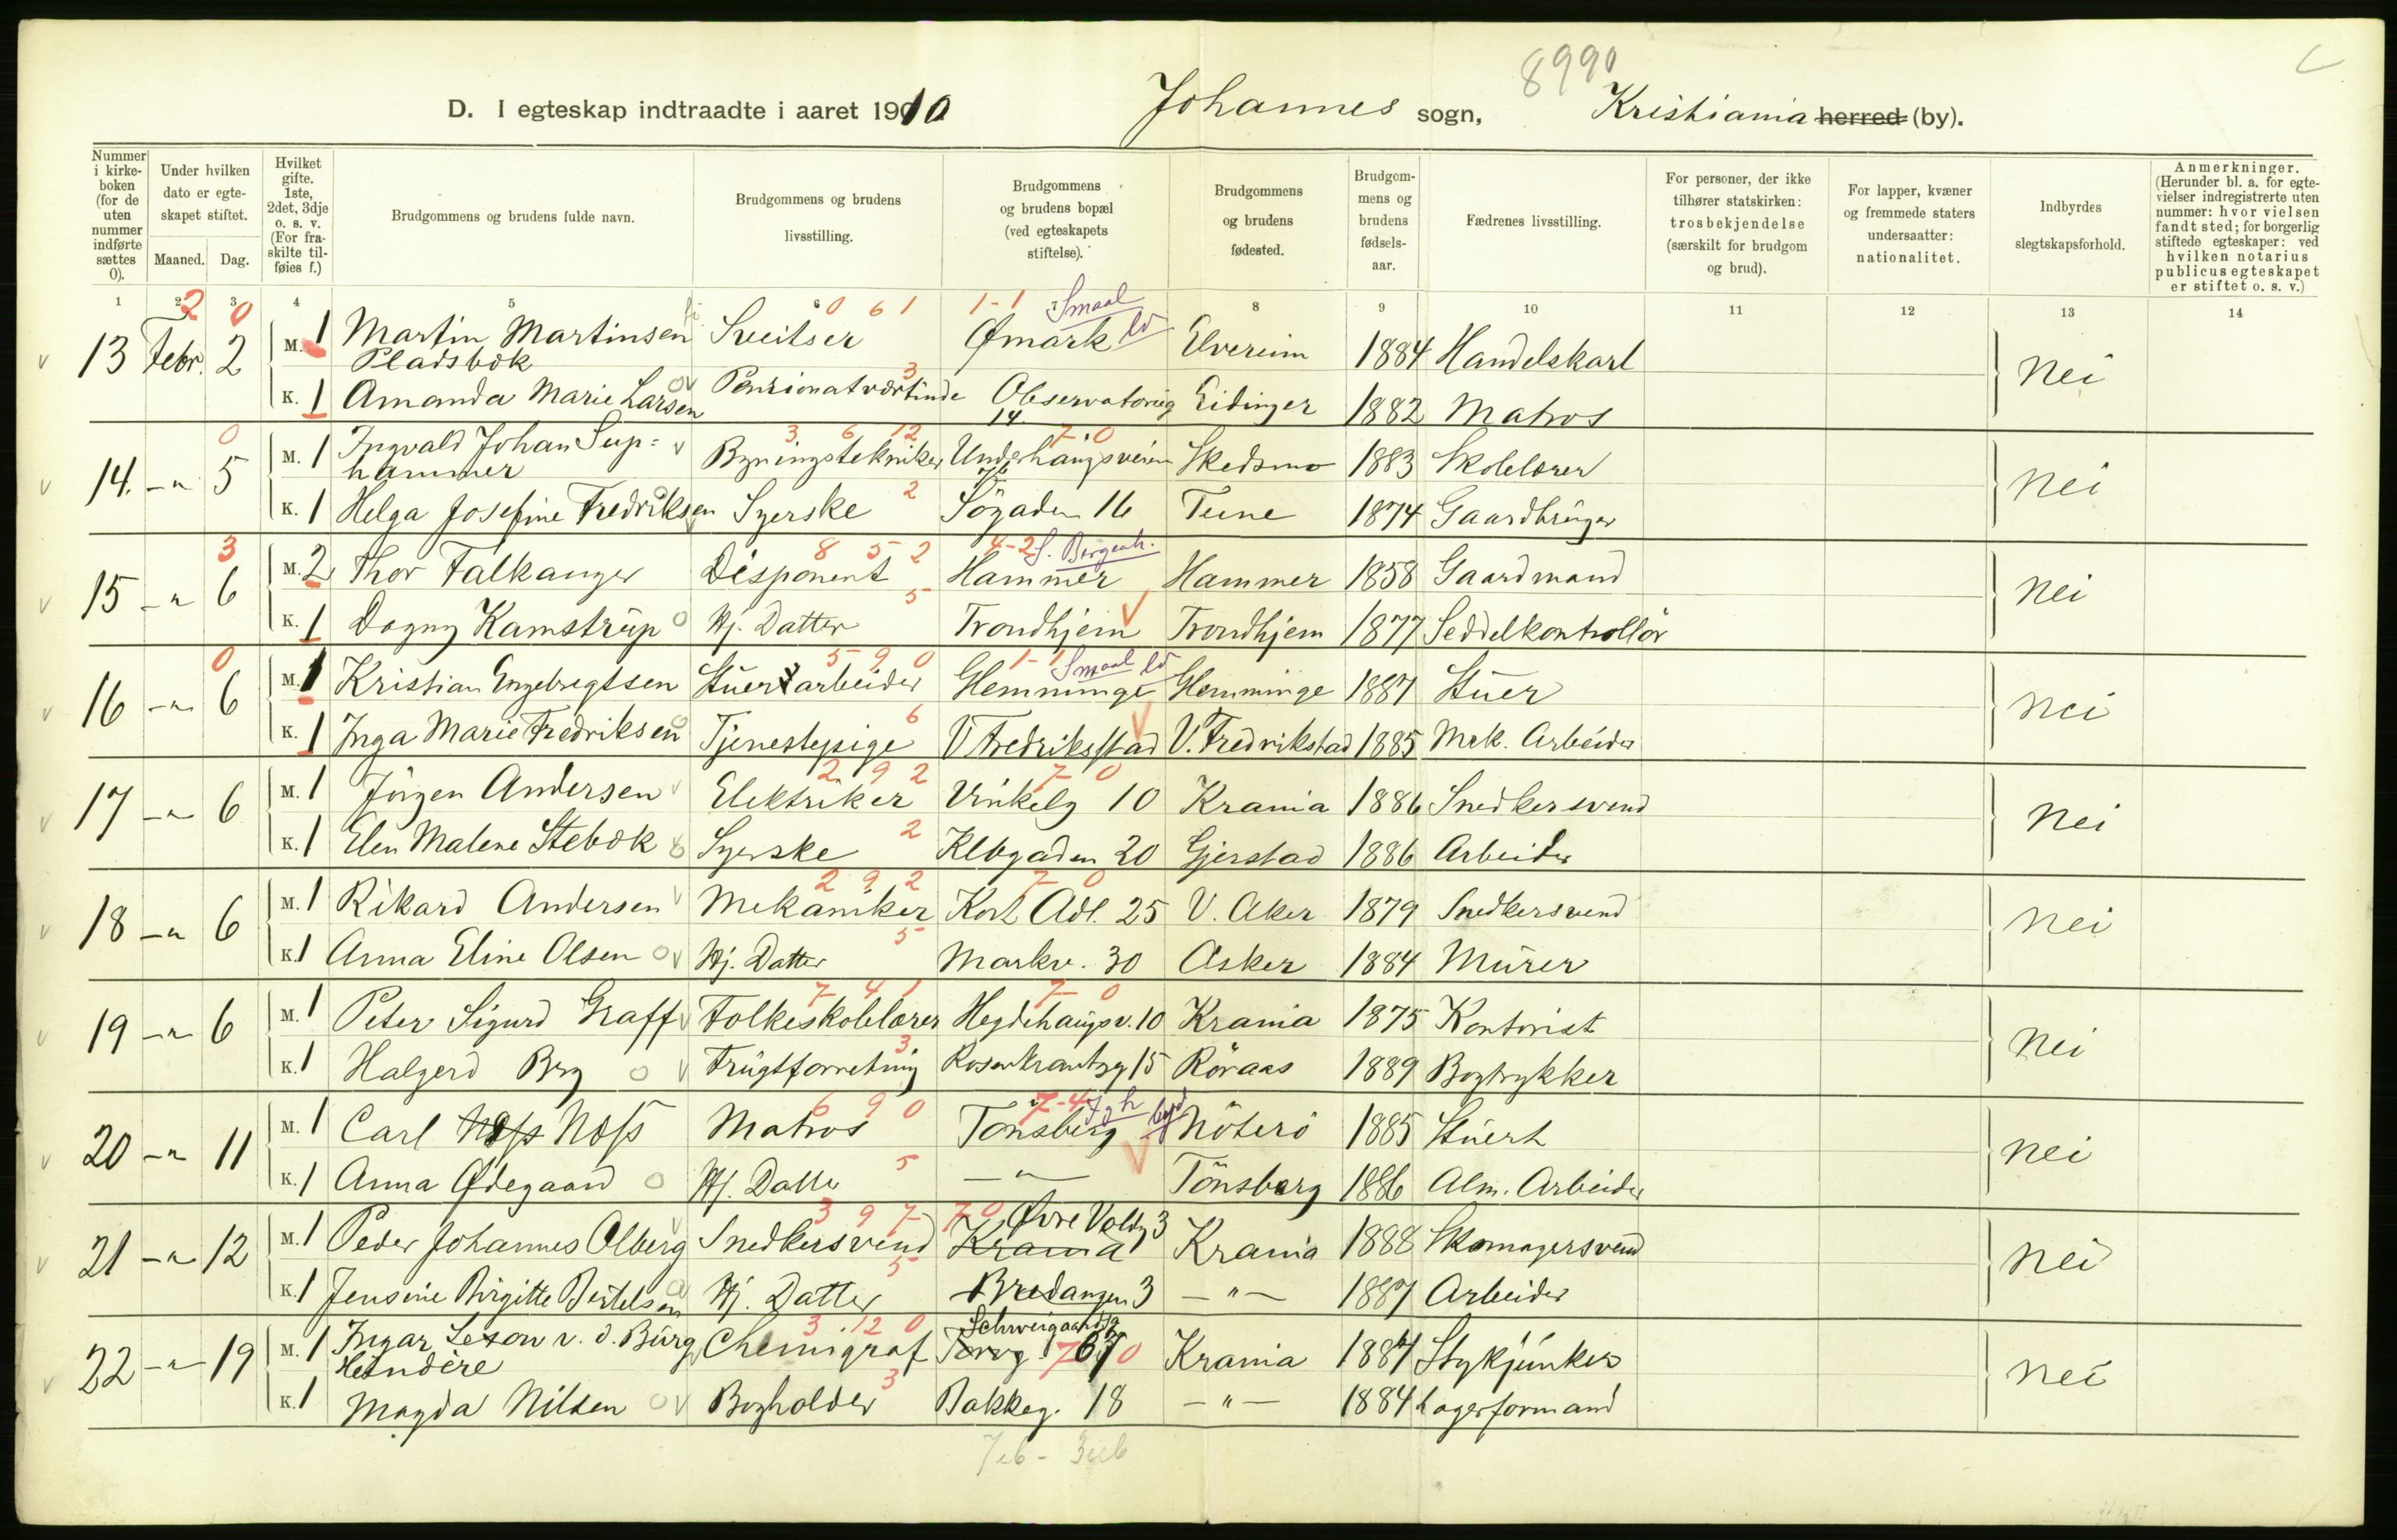 8990
D. I egteskap indtraadte i aaret 1910 Johannes sogn, Kristiania herred (by).
Nummer i kirke-boken (for de uten nummer indførte sættes 0).
Under hvilken dato er egte-skapet stiftet.
Maaned. Dag.
Hvilket gifte. 1ste, 2det, 3dje o. s. v. (For fra-skilte til-føies f.)
Brudgommens og brudens fulde navn.
Brudgommens og brudens livsstilling.
Brudgommens og brudens bopæl (ved egteskapets stiftelse).
Brudgommens og brudens fødested.
Brudgom-mens og brudens fødsels-aar.
Fædrenes livsstilling.
For personer, der ikke tilhører statskirken: trosbekjendelse (særskilt for brudgom og brud).
For lapper, kvæner og fremmede staters undersaatter: nationalitet.
Indbyrdes slegtskapsforhold.
Anmerkninger. (Herunder bl. a. for egte-vielser indregistrerte uten nummer: hvor vielsen fandt sted; for borgerlig stiftede egteskaper: ved hvilken notarius publicus egteskapet er stiftet o. s. v.)
1 2 3 4 5 6 7 8 9 10 11 12 13 14
2 0 0 6 1 1-1 Smaal
13 Febr. 2 M. 1 Martin Martinsen Pladsbæk Sveitser Ømark Elvereim 1884 Handelskarl Nei
K. 1 Amanda Marie Larsen Pensionatværtinde 3 Observatorieg 14. Eidinger 1882 Matros
0 3 6 12 7-0
14. -"- 5 M. 1 Ingvald Johan Sup=hammer Bygningstekniker Underhaugsveien Skedsmo 1883 Skolelærer Nei
K. 1 Helga Josefine Fredriksen Syerske 2 Søgaden 16 Tune 1874 Gaardbruger
3 8 5 2 4-2 S. Bergenh.
15 -"- 6 M. 2 Thor Falkanger Disponent Hammer Hammer 1858 Gaardmand Nei
K. 1 Dagny Kamstrup Hj. Datter 5 Trondhjem Trondhjem 1877 Seddelkontrollør
0 5 9 0 1-1 Smaal
16 -"- 6 M. 1 Kristian Engebregtsen Stuerarbeider Glemminge Glemminge 1887 Stuer Nei
K. 1 Inga Marie Fredriksen Tjenestepige 6 V Fredriksstad V. Fredrikstad 1885 Mek. Arbeider
2 9 2 7 0
17 -"- 6 M. 1 Jörgen Andersen Elektriker Vinkelg 10 Krania 1886 Snedkersvend Nei
K. 1 Elen Malene Stebæk Syerske 2 Klbgaden 20 Gjerstad 1886 Arbeider
2 9 2 7 0
18 -"- 6 M. 1 Rikard Andersen Mekaniker Kort Adl. 25 V. Aker 1879 Snedkersvend Nei
K. 1 Anna Eline Olsen Hj. Datter 5 Markv. 30 Asker 1884 Murer
7 4 1 7 0
19 -"- 6 M. 1 Peter Sigurd Graff Folkeskolelærer Hegdehaugsv. 10 Krania 1875 Kontorist Nei
K. 1 Halgerd Berg Frugtforretning 3 Rosenkrantzg 15 Röraas 1889 Bogtrykker
6 9 0 7-4
20 -"- 11 M. 1 Carl Næss Matros Tönsberg Nöterö 1885 Stuert Nei
K. 1 Anna Ødegaard Hj. Datter 5 -"- Tönsberg 1886 Alm. Arbeider
3 9 7 7 0
21 -"- 12 M. 1 Peder Johannes Olberg Snedkersvend Krania Øvre Voldg 3 Krania 1888 Skomagersvend Nei
K. 1 Jensine Birgitte Bertelsen Hj. Datter 5 Bredangen 3 -"- 1887 Arbeider
3 12 0 7 0
22 -"- 19 M. 1 Ingar Lexow v. d. Burg Hendere Chemigraf Torvg Schweigaardsg 67 Krania 1887 Stykjunker Nei
K. 1 Magda Nilsen Bogholder 3 Bakkeg. 18 -"- 1884 Lagerformand